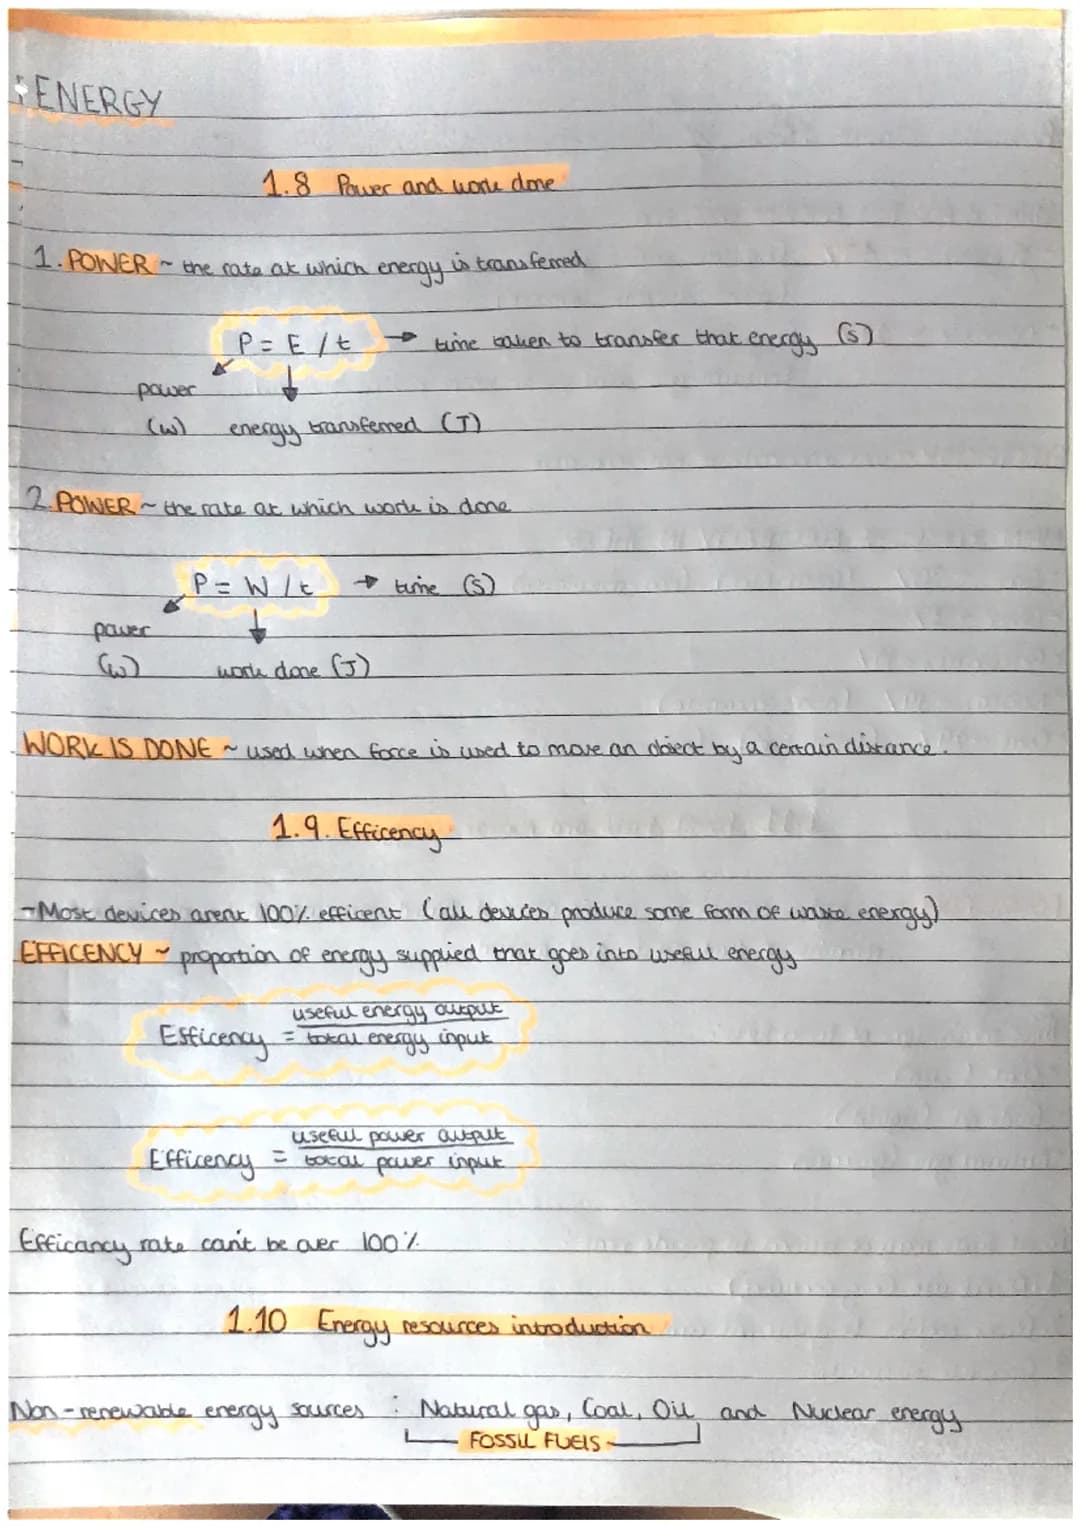 ENERGY
1.8 Power and work done
1. POWER ~ the rate at which energy is transferred
P = E / t → time taken to transfer that energy (s)
power
(W) energy transferred (J)
2. POWER ~ the rate at which work is done
P = W / t → time (s)
power
(W) work done (J)
WORK IS DONE ~ used when force is used to move an object by a certain distance.
1.9. Efficency
-Most devices arent 100% efficent (all devices produce some form of waste energy)
EFFICENCY ~ proportion of energy supplied that goes into usefull energy
useful energy output
Efficency = total energy input
useful power output
Efficency = total power input
Efficancy rate can't be over 100%
1.10 Energy resources introduction
Non-renewable energy sources : Natural gas, Coal, Oil and Nuclear energy
FOSSIL FUELS